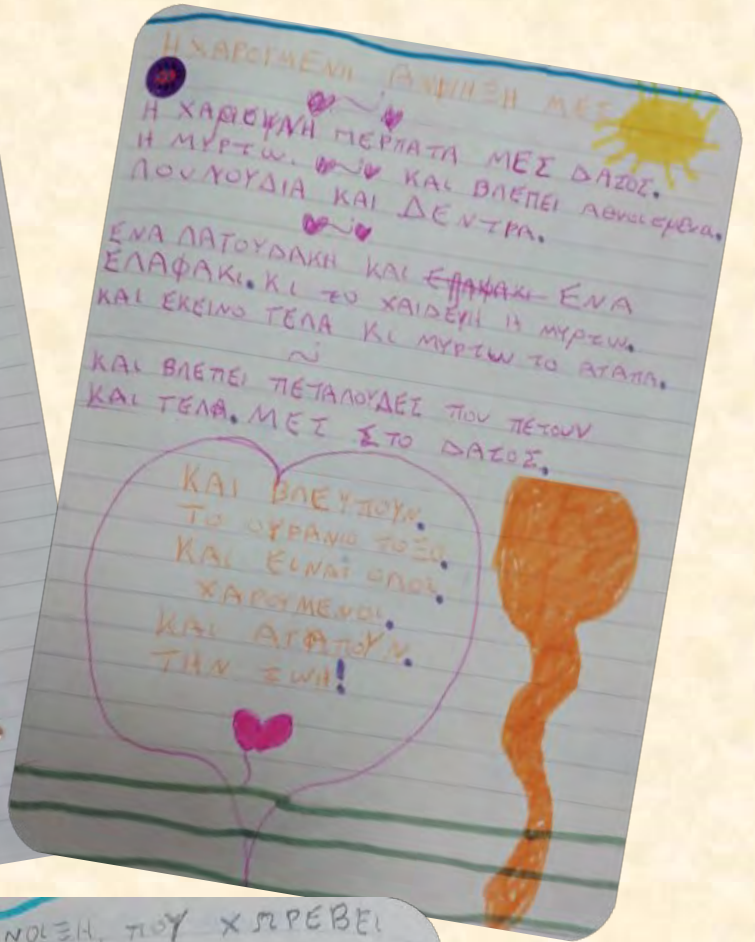 Η ΧΑΡΟΥΜΕΝΗ ΑΝΨΗΞΗ ΜΕΣ
Η ΧΑΡΕΨΝΗ ΠΕΡΠΑΤΑ ΜΕΣ ΔΑΣΟΣ.
Η ΜΥΡΤΩ. ΚΑΙ ΒΛΕΠΕΙ
ΛΟΥΛΟΥΔΙΑ ΚΑΙ ΔΕΝΤΡΑ.
ΕΝΑ ΛΑΓΟΥΔΑΚΗ ΚΑΙ ΕΝΑ
ΕΛΑΦΑΚΙ. ΚΙ ΤΟ ΧΑΙΔΕΨΗ Η ΜΥΡΤΩ.
ΚΑΙ ΕΚΕΙΝΟ ΓΕΛΑ ΚΙ ΜΥΡΤΩ ΤΟ ΑΓΑΠΑ.
ΚΑΙ ΒΛΕΠΕΙ ΠΕΤΑΛΟΥΔΕΣ ΠΟΥ ΠΕΤΟΥΝ
ΚΑΙ ΓΕΛΑ. ΜΕΣ ΣΤΟ ΔΑΣΟΣ.
ΚΑΙ ΒΛΕΥΠΟΥΝ.
ΤΟ ΟΥΡΑΝΙΟ ΤΟΞΟ.
ΚΑΙ ΕΙΝΑΙ ΟΛΟΙ.
ΧΑΡΟΥΜΕΝΟΙ.
ΚΑΙ ΑΓΑΠΟΥΝ.
ΤΗΝ ΖΩΗ!
ΝΟΙΞΗ. ΠΟΥ ΧΩΡΕΒΕΙ